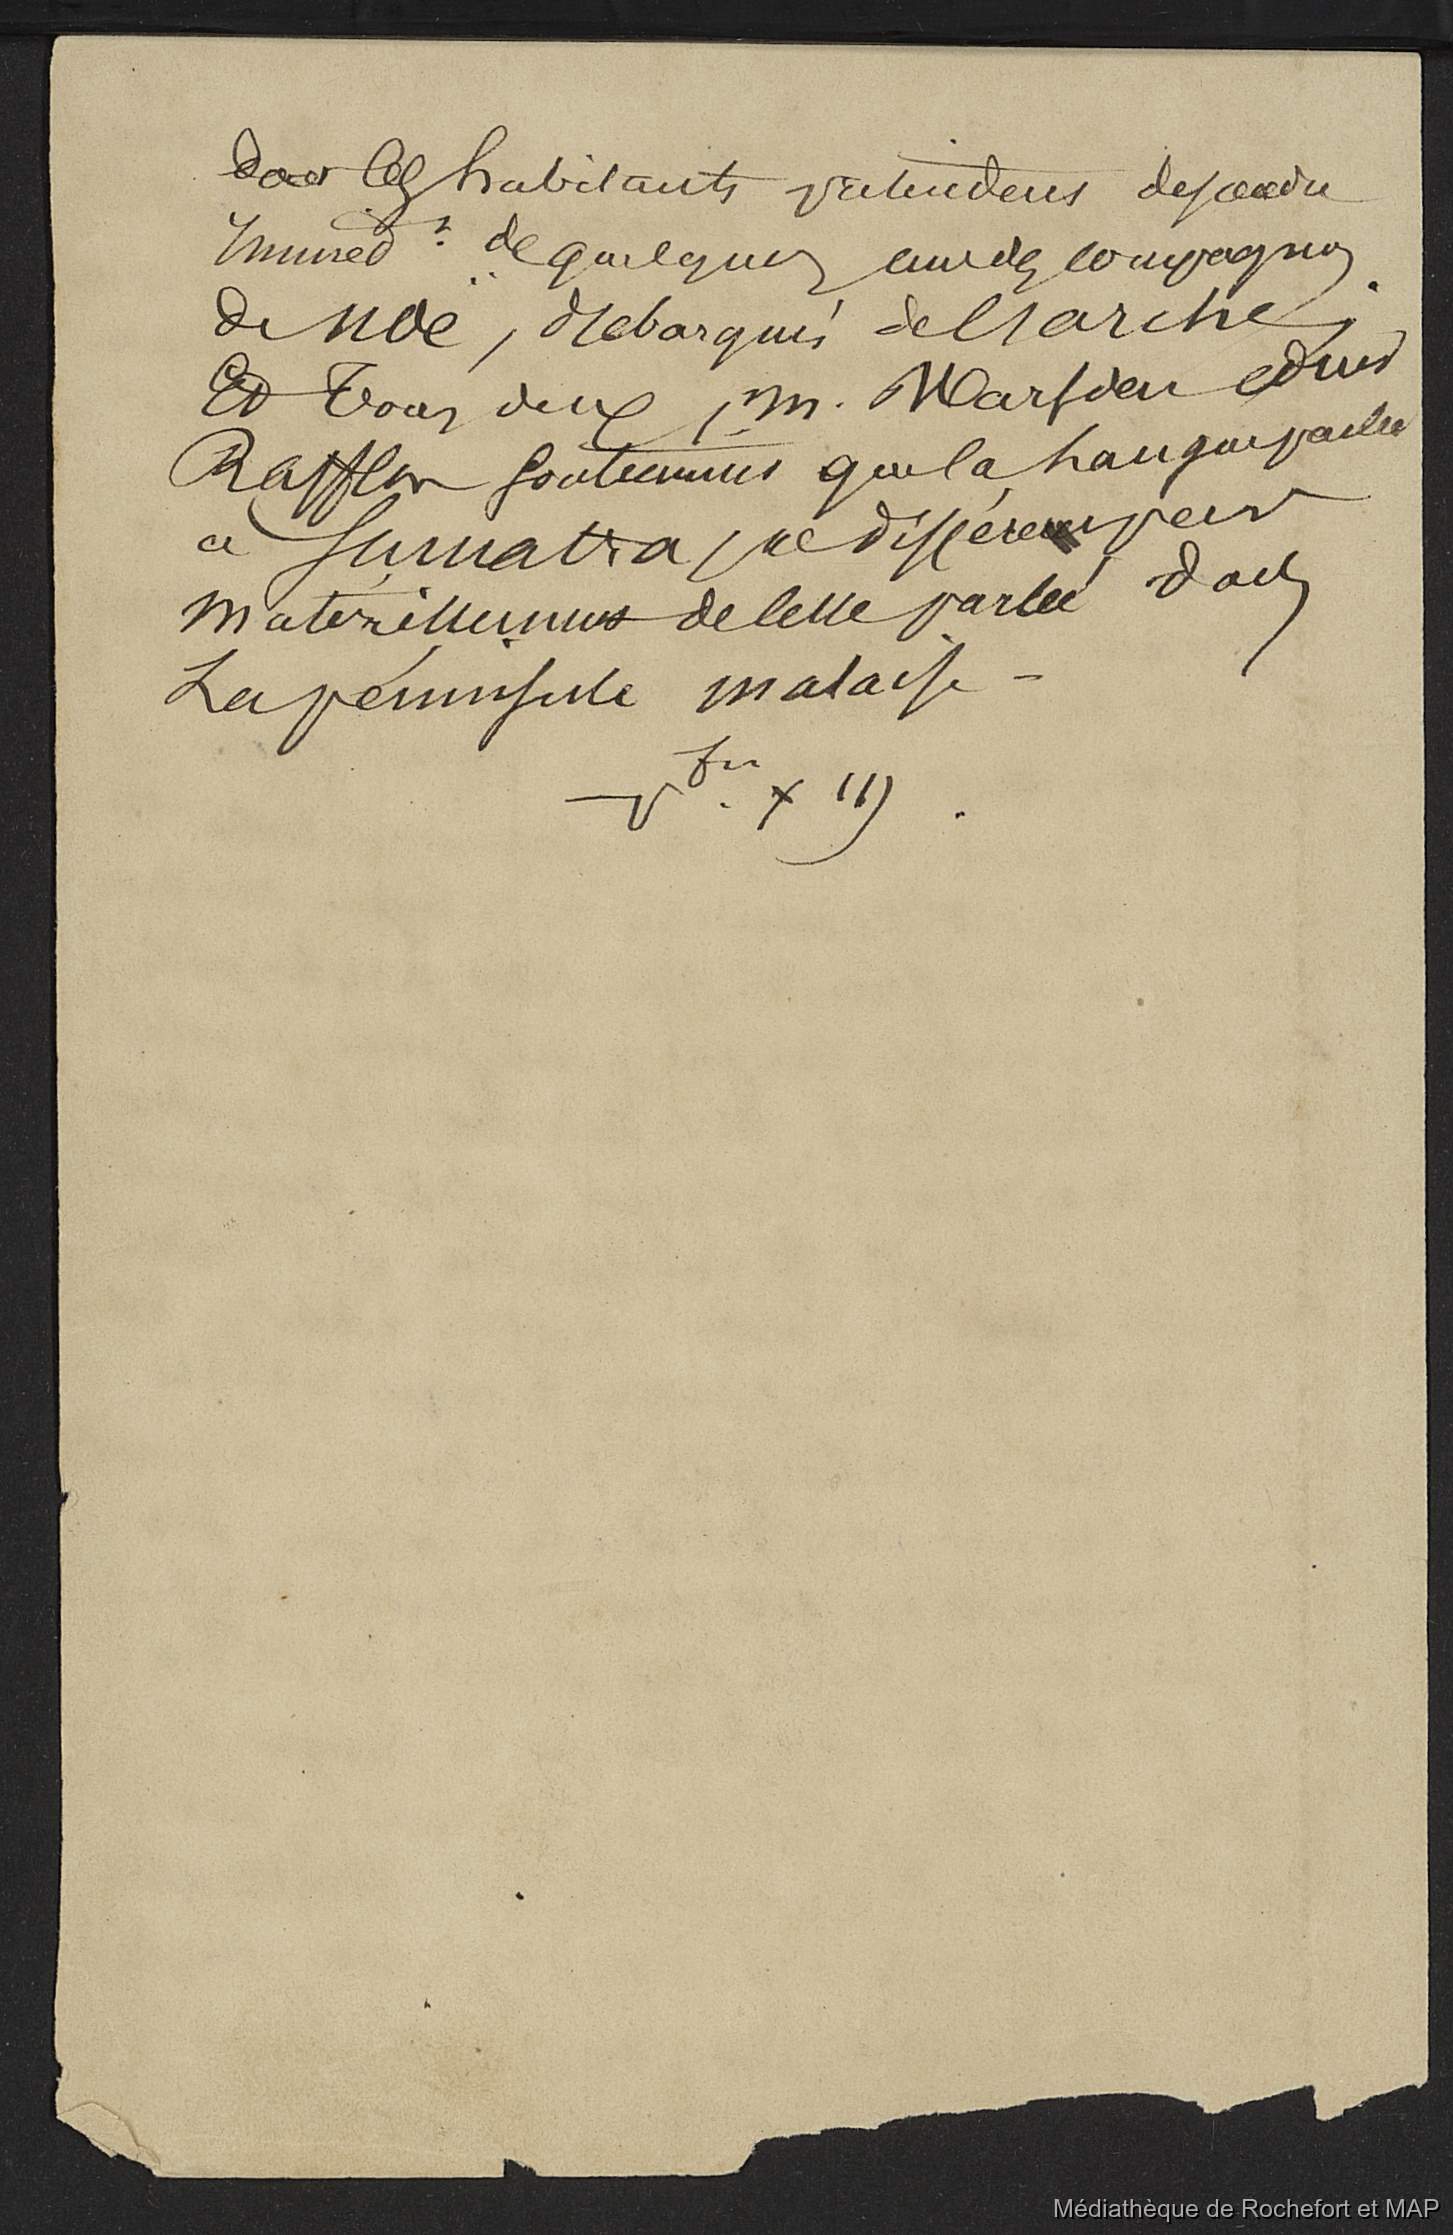 dont les habitants prétendent descendre
immédt. de quelques uns des compagnons
de Noé, débarqués de l'arche.
Et tous deux, m. Marsden et m.
Raffles soutiennent que la langue parlée
a Sumatra, ne diffère pas
matériellement de celle parlée dans
La péninsule malaise -
X 119.
Médiathèque de Rochefort et MAP